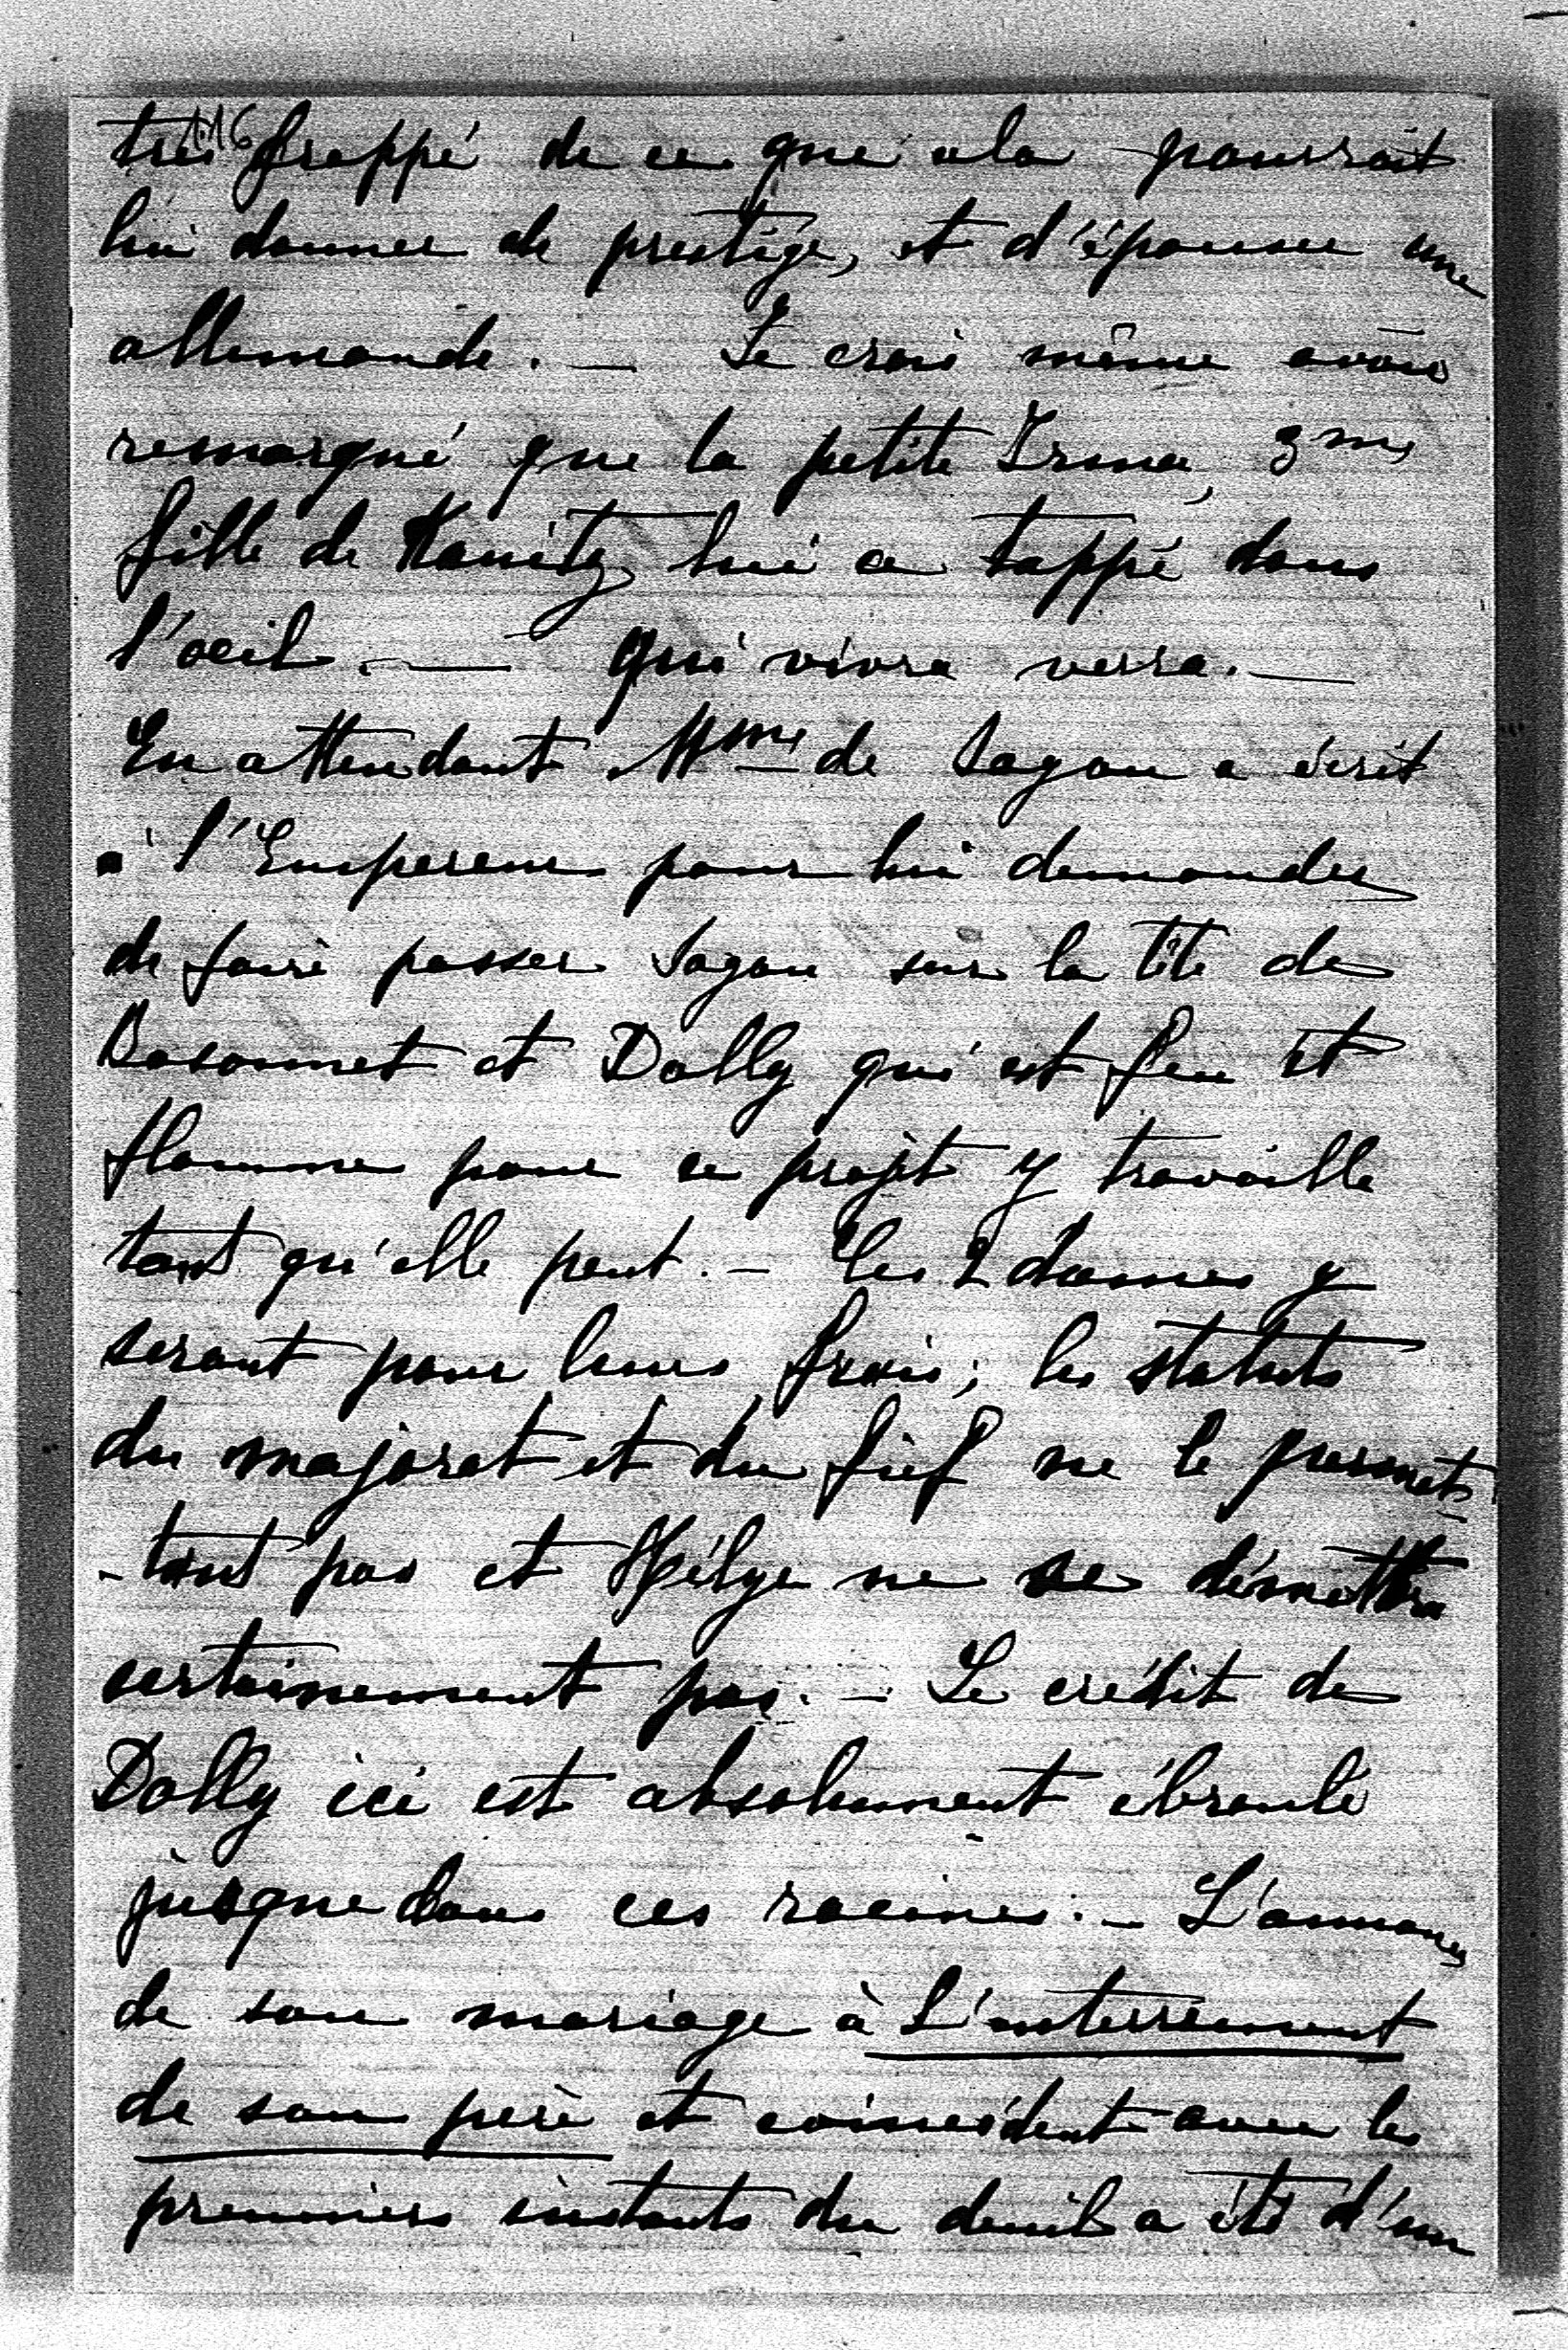 116
très frappé de ce que cela pourrait
lui donner de prestige, et d'épouser une
allemande. — Je crois même avoir
remarqué que la petite Irma, 3me
fille de Kanitz lui a tappé dans
l'oeil. — qui vivra verra. —
En attendant Mme de Sagan a écrit
à l'Empereur pour lui demander
de faire passer Sagan sur la tête de
Bosonnet et Dolly qui est feu et
flamme pour ce projet y travaille
tant qu'elle peut. — Les 2 dames y
seront pour leurs frais; les statuts
du majorat et du fief ne le permet-
-tant pas et Hélye ne se démettra
certainement pas. — Le crédit de
Dolly ici est absolument ébranlé
jusque dans ces racines. — L'annonce
de son mariage à L'enterrement
de son père et coincident avec les
premiers instants du deuil a été d'un